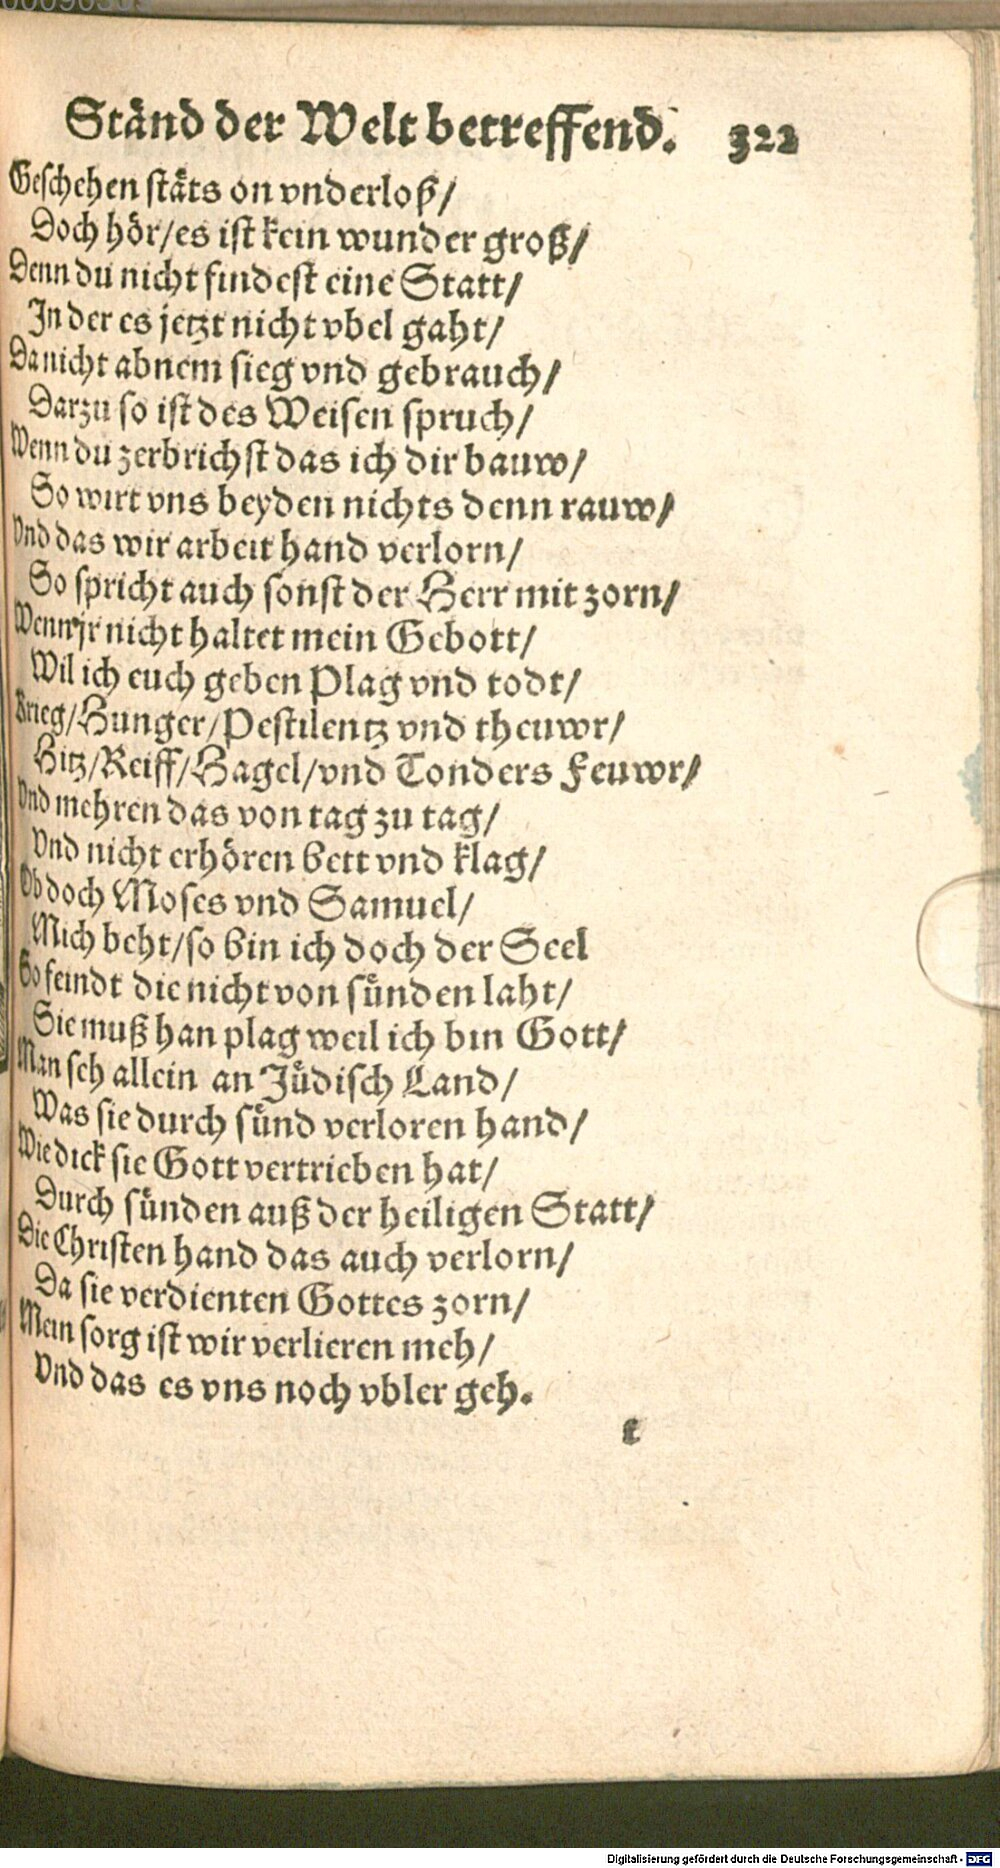 Stånd der Welt betreffend. 322
Geschehen ståts on vnderloß/
Doch hör/es ist kein wunder groß/
Denn du nicht findest eine Statt/
In der es jetzt nicht vbel gaht/
Da nicht abnem sieg vnd gebrauch/
Darzu so ist des Weisen spruch/
Wenn du zerbrichst das ich dir bauw/
So wirt vns beyden nichts denn rauw/
Vnd das wir arbeit hand verlorn/
So spricht auch sonst der Herr mit zorn/
Wenn jr nicht haltet mein Gebott/
Wil ich euch geben Plag vnd todt/
Krieg/Hunger/Pestilentz vnd theuwr/
Hitz/Reiff/Hagel/vnd Tonders Feuwr/
Vnd mehren das von tag zu tag/
Vnd nicht erhören bett vnd klag/
Ob doch Moses vnd Samuel/
Mich beht/so bin ich doch der Seel
So feindt die nicht von sünden laht/
Sie muß han plag weil ich bin Gott/
Man seh allein an Jüdisch Land/
Was sie durch sünd verloren hand/
Wie dick sie Gott vertrieben hat/
Durch sünden auß der heiligen Statt/
Die Christen hand das auch verlorn/
Da sie verdienten Gottes zorn/
Mein sorg ist wir verlieren meh/
Vnd das es vns noch vbler geh.
t
Digitalisierung gefördert durch die Deutsche Forschungsgemeinschaft - DFG